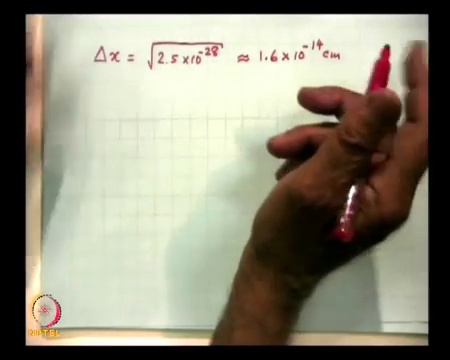 Δx = √2.5×10⁻²⁸ ≈ 1.6×10⁻¹⁴ cm
NPTEL